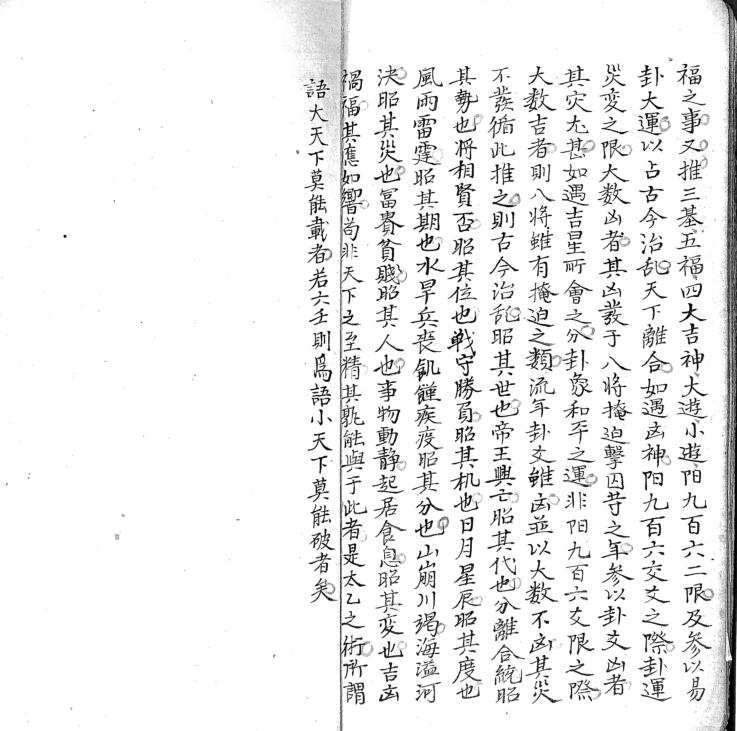 福之事又推三基五福四大吉神大遊小遊阳九百六二限及參以易
卦大運以占古今治乱天下離合如遇凶神阳九百六交爻之際卦運
災変之限大数凶者其凶發于八將掩迫擊囚苛之年参以卦爻凶者
其灾尤甚如遇吉星所會之分卦象和平之運非阳九百六爻限之際
大数吉者則八将雖有掩迫之類流年卦爻雖凶並以大数不凶其災
不發循此推之則古今治乱昭其世也帝王興亡昭其代也分離合統昭
其勢也将相賢否昭其位也戦守勝負昭其机也日月星辰昭其度也
風雨雷霆昭其期也水旱兵喪飢饉疾疫昭其分也山崩川竭海溢河
决昭其災也冨貴貧賤昭其人也事物動静起居食息昭其変也吉凶
禍福其應如響苟非天下之至精其孰能與于此者是太乙之術所謂
語大天下莫能載者若六壬則爲語小天下莫能破者矣